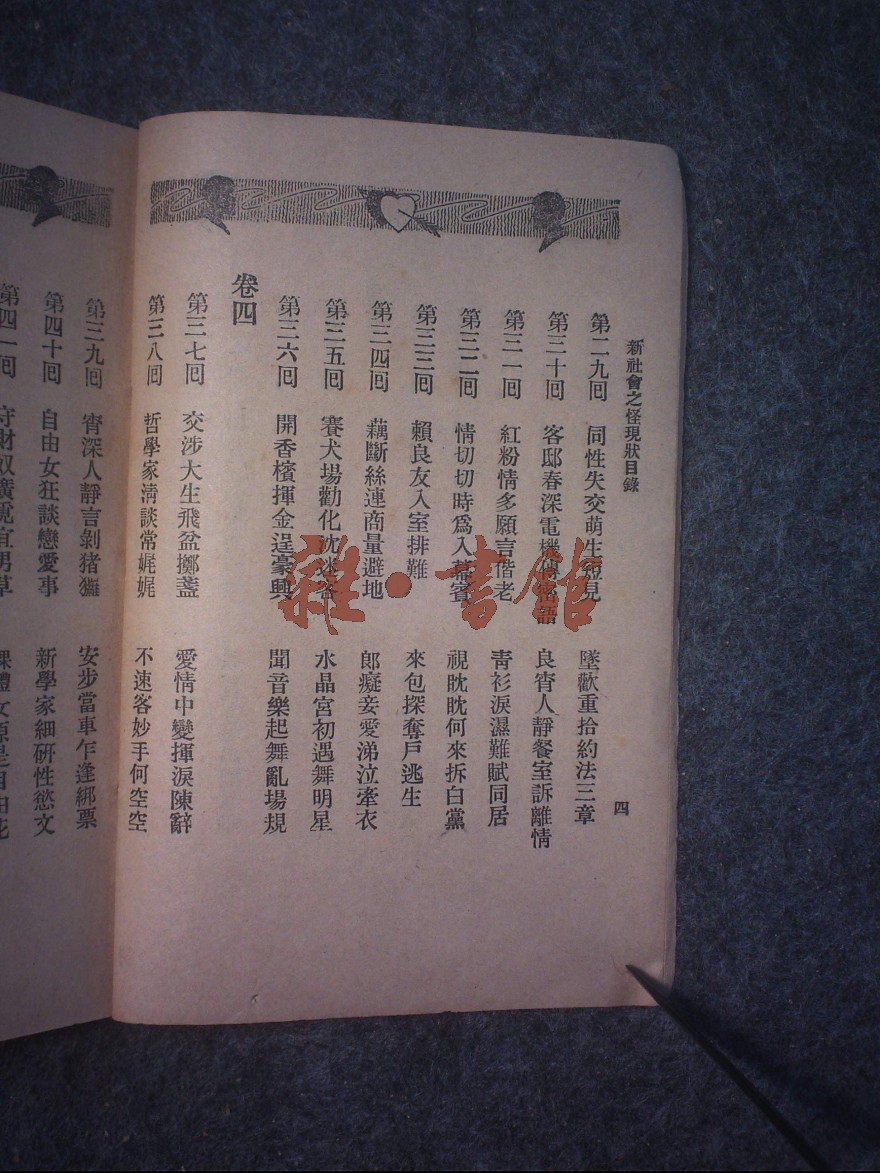 新社會之怪現狀目錄
四
第二九回 同性失交萌生短見 墜歡重拾約法三章
第三十回 客邸春深電機傳密語 良宵人靜餐室訴離情
第三一回 紅粉情多願言偕老 青衫淚濕難賦同居
第三二回 情切切時爲入幕賓 視眈眈何來拆白黨
第三三回 賴良友入室排難 來包探奪戶逃生
第三四回 藕斷絲連商量避地 郎癡妾愛涕泣牽衣
第三五回 賽犬場勸化沈迷客 水晶宮初遇舞明星
第三六回 開香檳揮金逞豪興 聞音樂起舞亂場規
卷四
第三七回 交涉大生飛盆擲盞 愛情中變揮淚陳辭
第三八回 哲學家淸談常娓娓 不速客妙手何空空
第三九回 宵深人靜言剝猪玀 安步當車乍逢綁票
第四十回 自由女狂談戀愛事 新學家細研性慾文
第四一回 守財奴廣覓宜男草
雜·書館